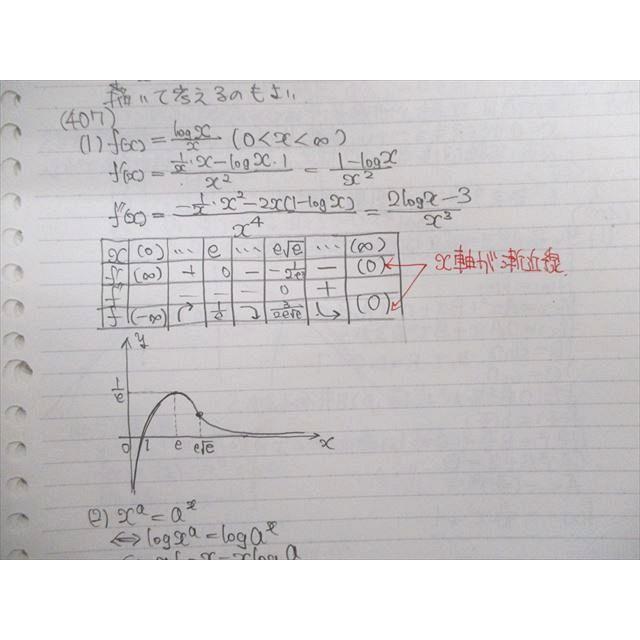 描いて考えるのもよい
(407)
(1) f(x) = log x / x (0 < x < ∞)
f'(x) = (1/x · x − log x · 1) / x² = (1 − log x) / x²
f''(x) = (−1/x · x² − 2x(1 − log x)) / x⁴ = (2log x − 3) / x³
x (0) … e … e√e … (∞)
f' (∞) + 0 − − 1/2e³ − (0) x軸が漸近線
f'' − − − 0 +
f (−∞) 1/e 3/2e√e (0)
y
1/e
0 1 e e√e x
(2) xᵃ = aˣ
⇔ log xᵃ = log aˣ